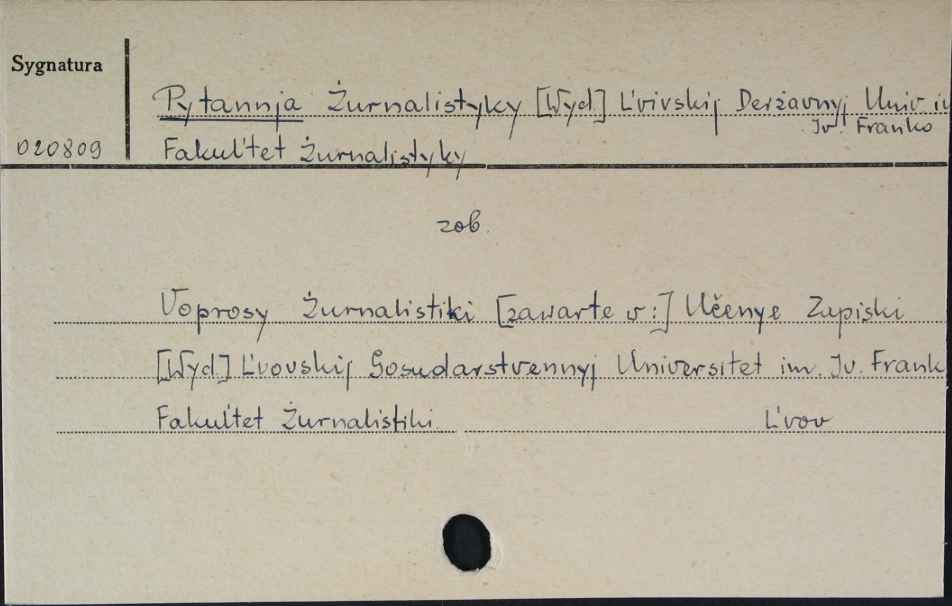 Sygnatura
Pytannja Żurnalistyky [Wyd] L'vivskij Deržavnyj Univ.
Iv. Franko
020809 Fakul'tet Żurnalistyky
zob.
Voprosy Żurnalistiki [zawarte w:] Učenye Zapiski
[Wyd] L'vovskij Gosudarstvennyj Universitet im. Iv. Frank
Fakul'tet Żurnalistiki L'vov